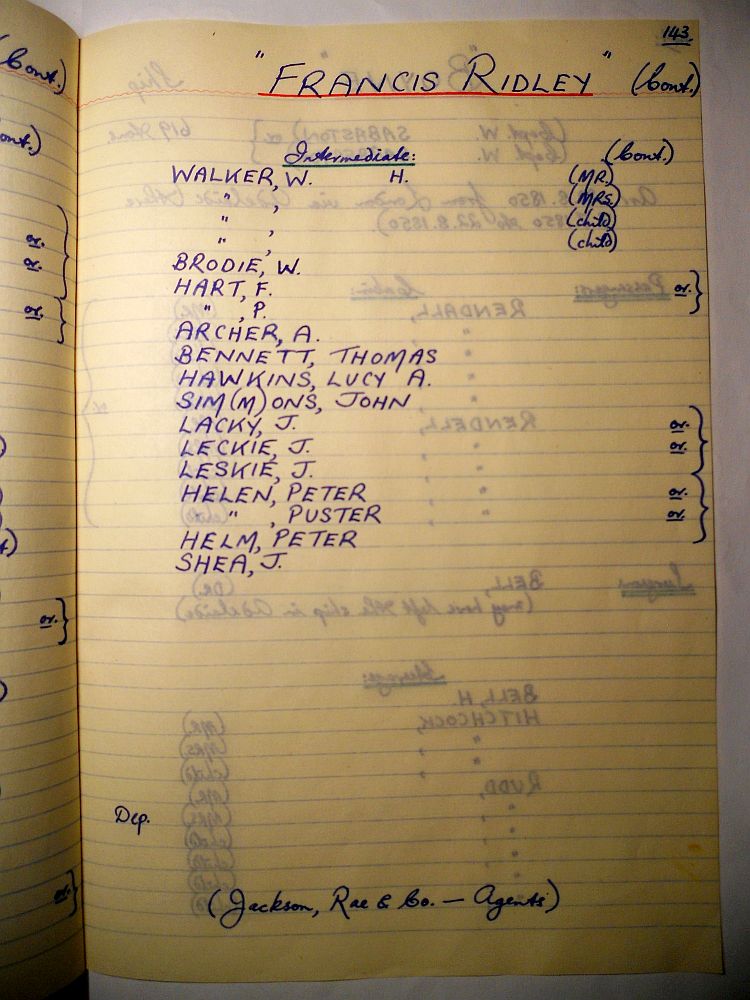 143.
"FRANCIS RIDLEY" (Cont.)
Intermediate: (Cont.)
WALKER, W. H. (MR.)
" , (MRS.)
" , (child)
" , (child)
BRODIE, W.
HART, F. or.
" , P.
ARCHER, A.
BENNETT, THOMAS
HAWKINS, LUCY A.
SIM(M)ONS, JOHN
LACKY, J. or.
LECKIE, J. or.
LESKIE, J.
HELEN, PETER or.
" , PUSTER or.
HELM, PETER
SHEA, J.
Dep.
(Jackson, Rae & Co. — Agents)